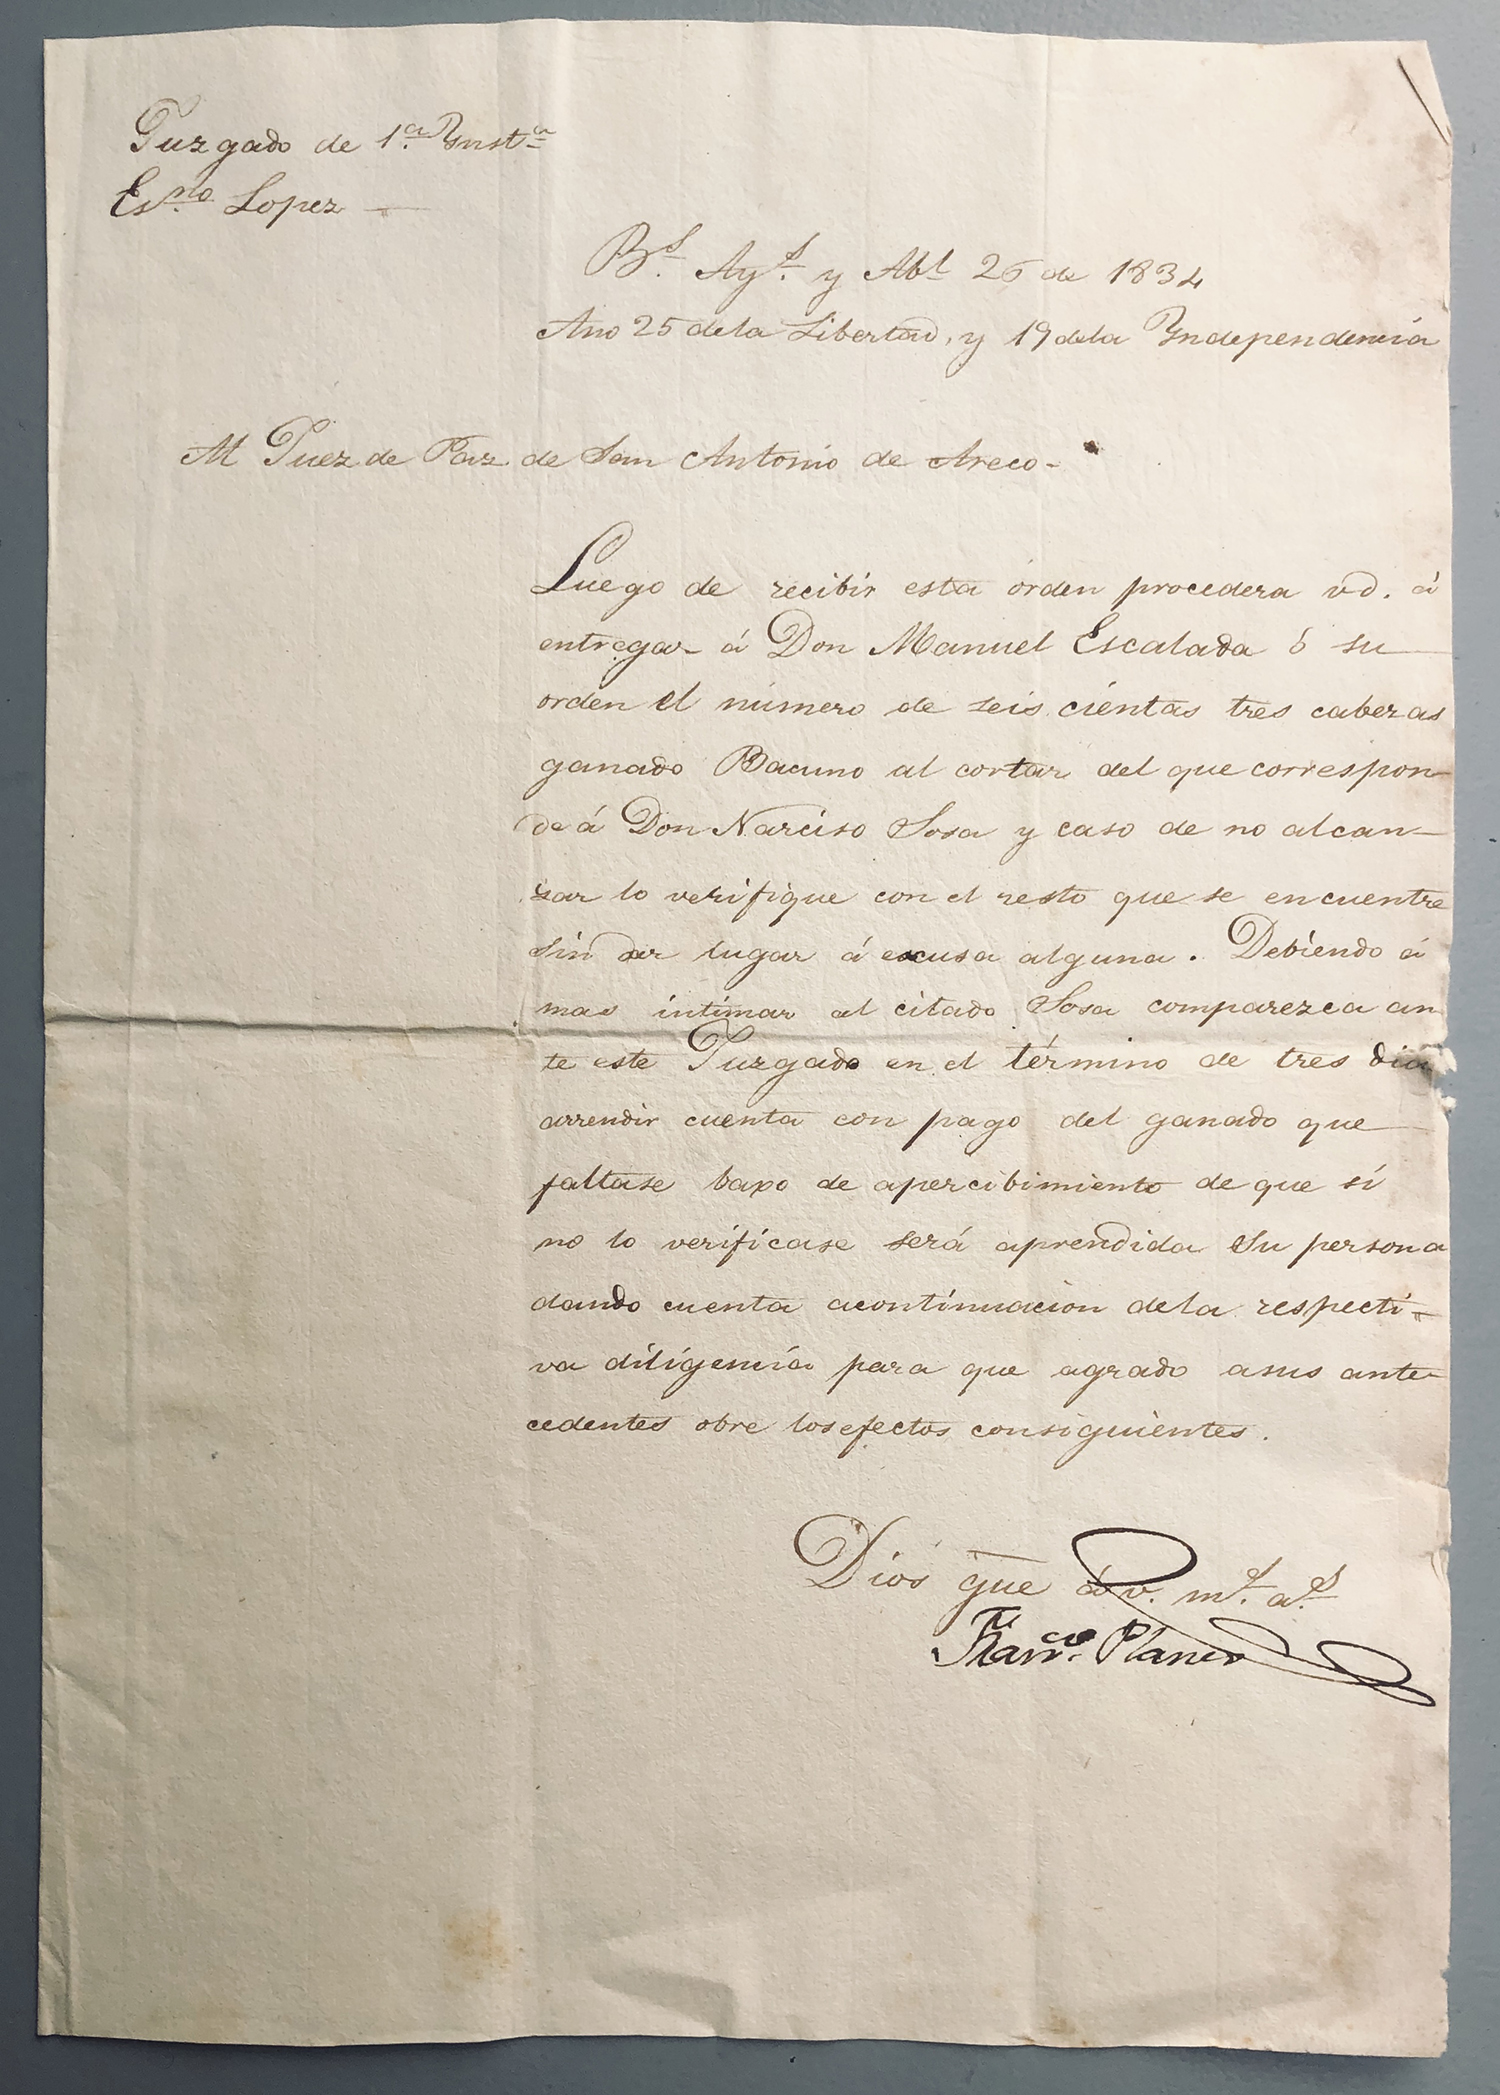 Juzgado de 1.ª Ynst.ª
Es.no Lopez
B.s Ay.s y Abl 26 de 1834
Año 25 dela Libertad, y 19 dela Yndependencia
Al Juez de Paz de San Antonio de Areco-
Luego de recibir esta orden procedera vd. á
entregar á Don Manuel Escalada ó su
orden el número de seis cientas tres cabezas
ganado Bacuno al cortar del que correspon-
de á Don Narciso Sosa y caso de no alcan-
zar lo verifique con el resto que se encuentre
sin dar lugar á escusa alguna. Debiendo á
mas intimar al citado Sosa comparezca an
te este Juzgado en el término de tres dia
arrendir cuenta con pago del ganado que
faltase baxo de apercibimiento de que si
no lo verificase será aprendida su persona
dando cuenta acontinuacion dela respecti-
va diligencia para que agrado asus ante-
cedentes obre los efectos consiguientes.
Dios gue á v. m.s a.s
Fran.co Planes